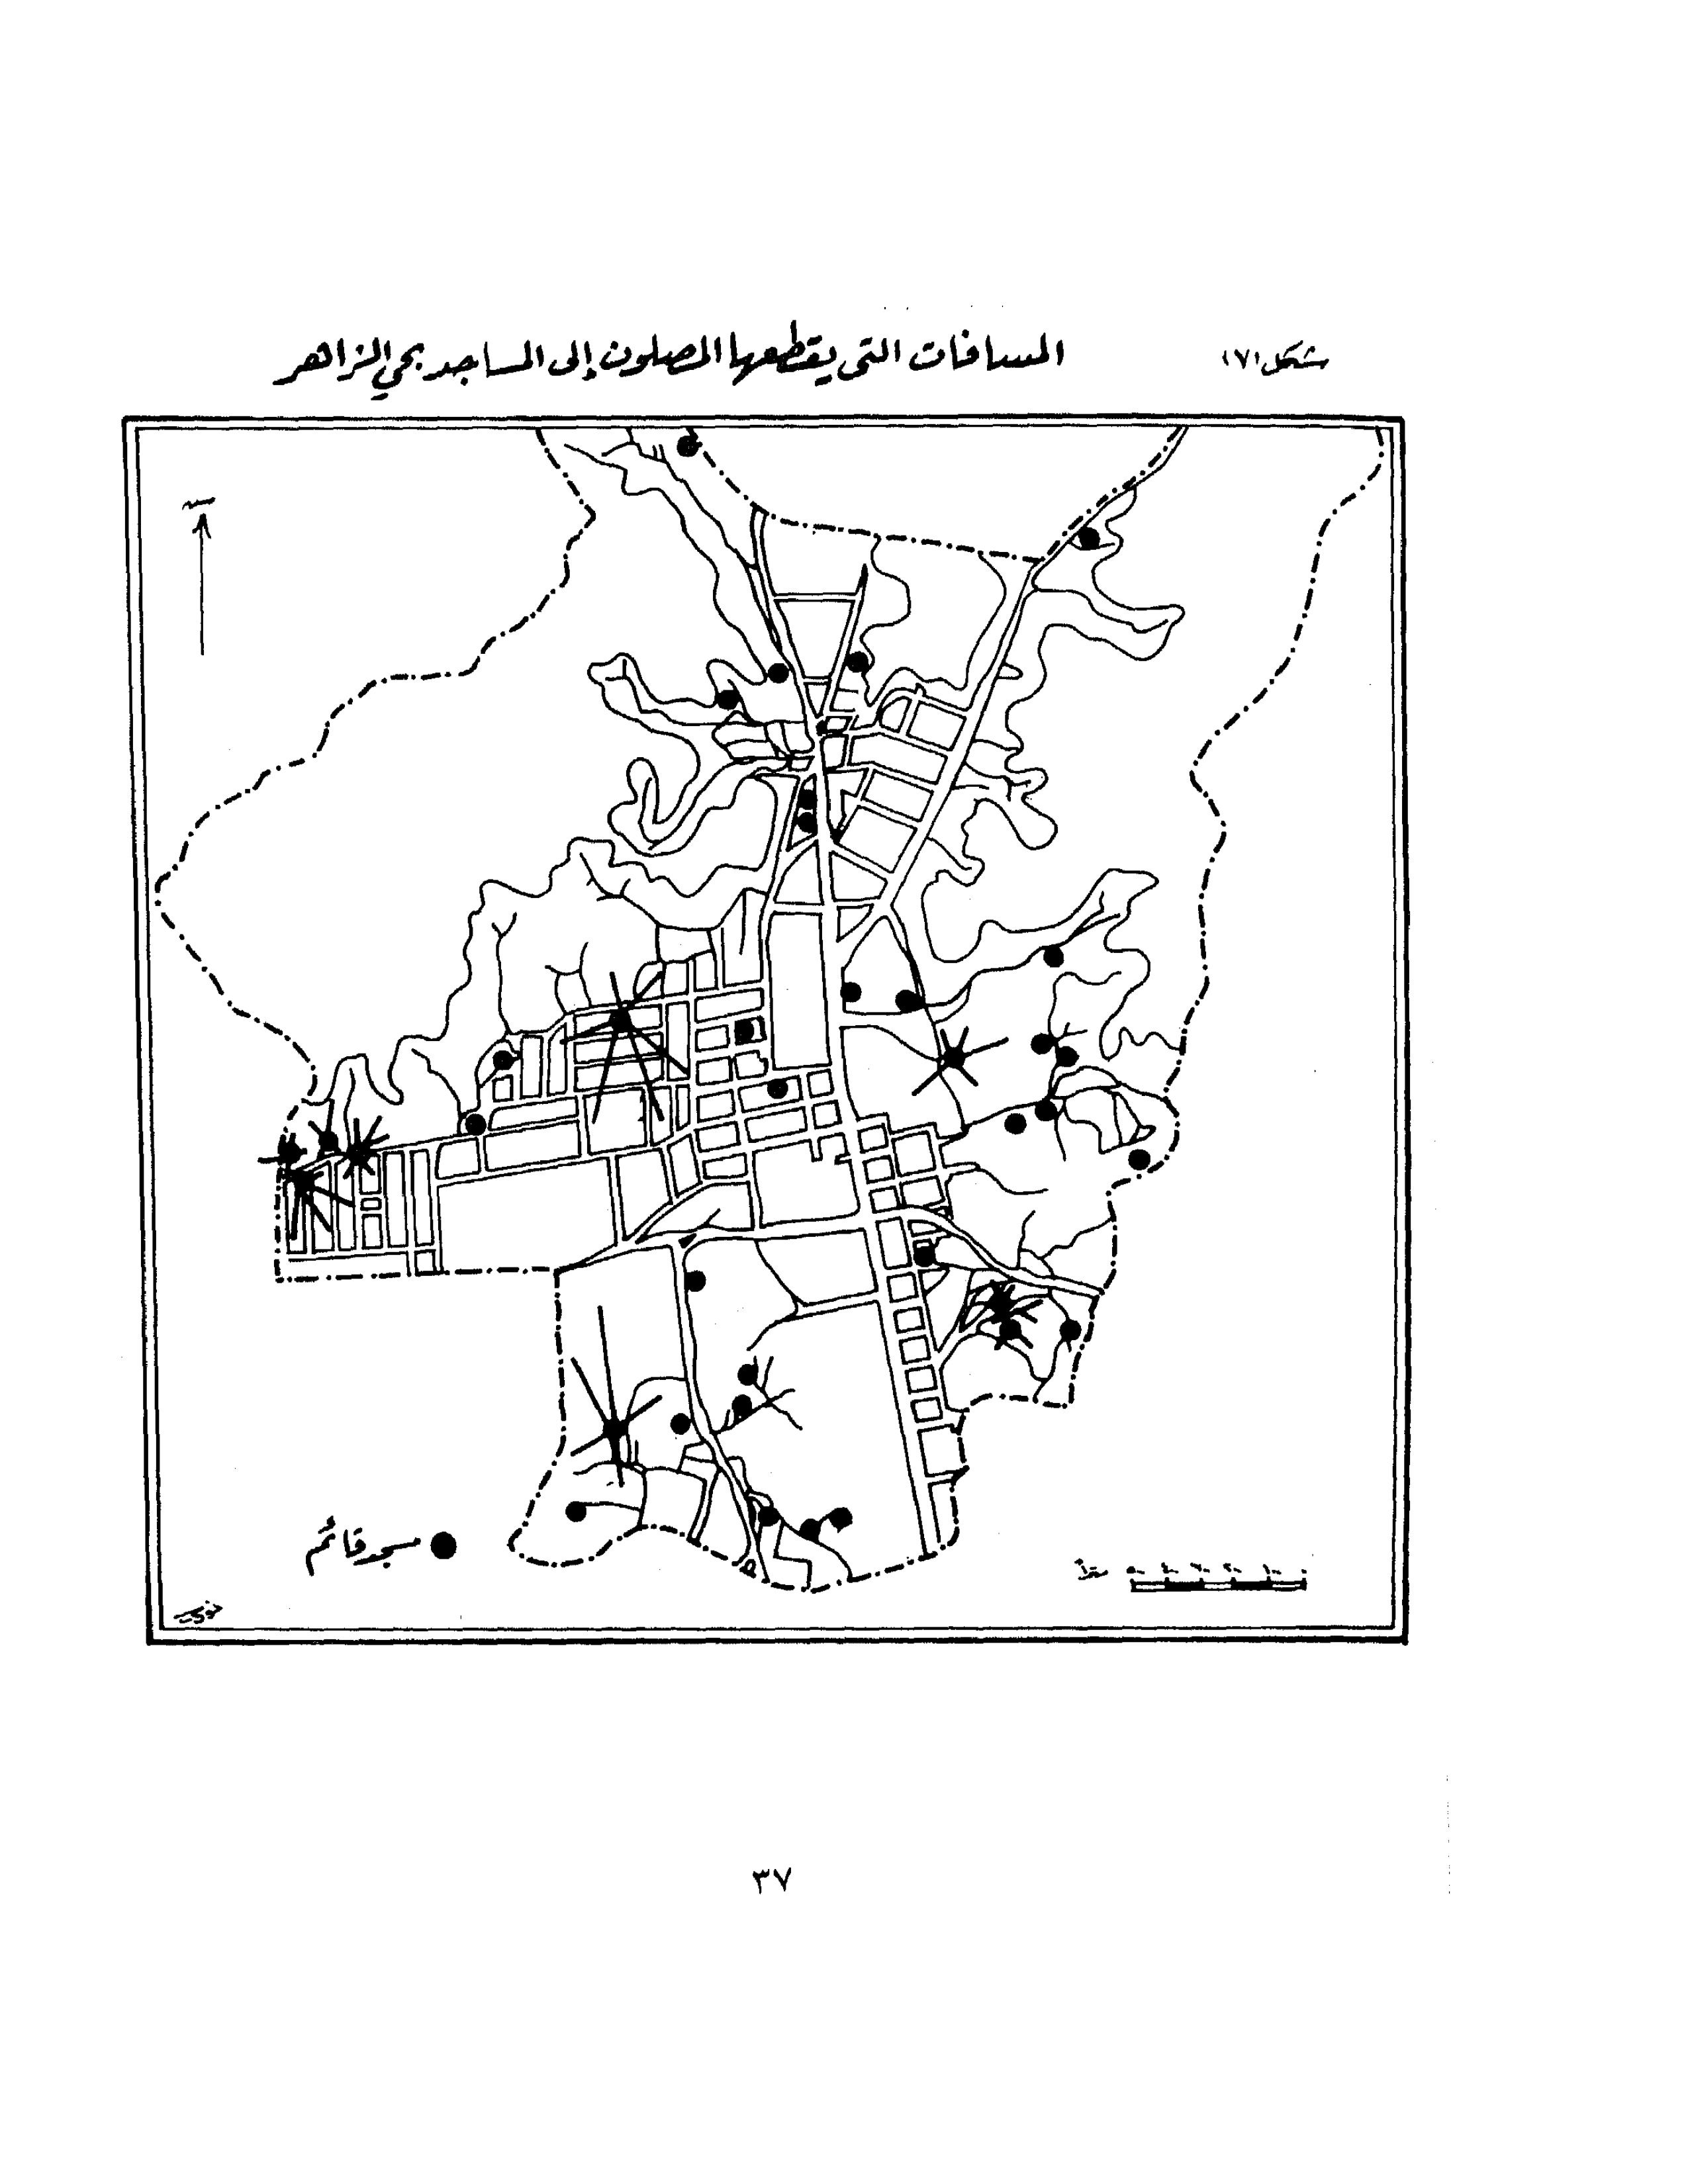 شكل (٧)
المسافات التى يقطعها المصلون إلى المساجد بحي الزاهر
مسجد قائم
٣٧